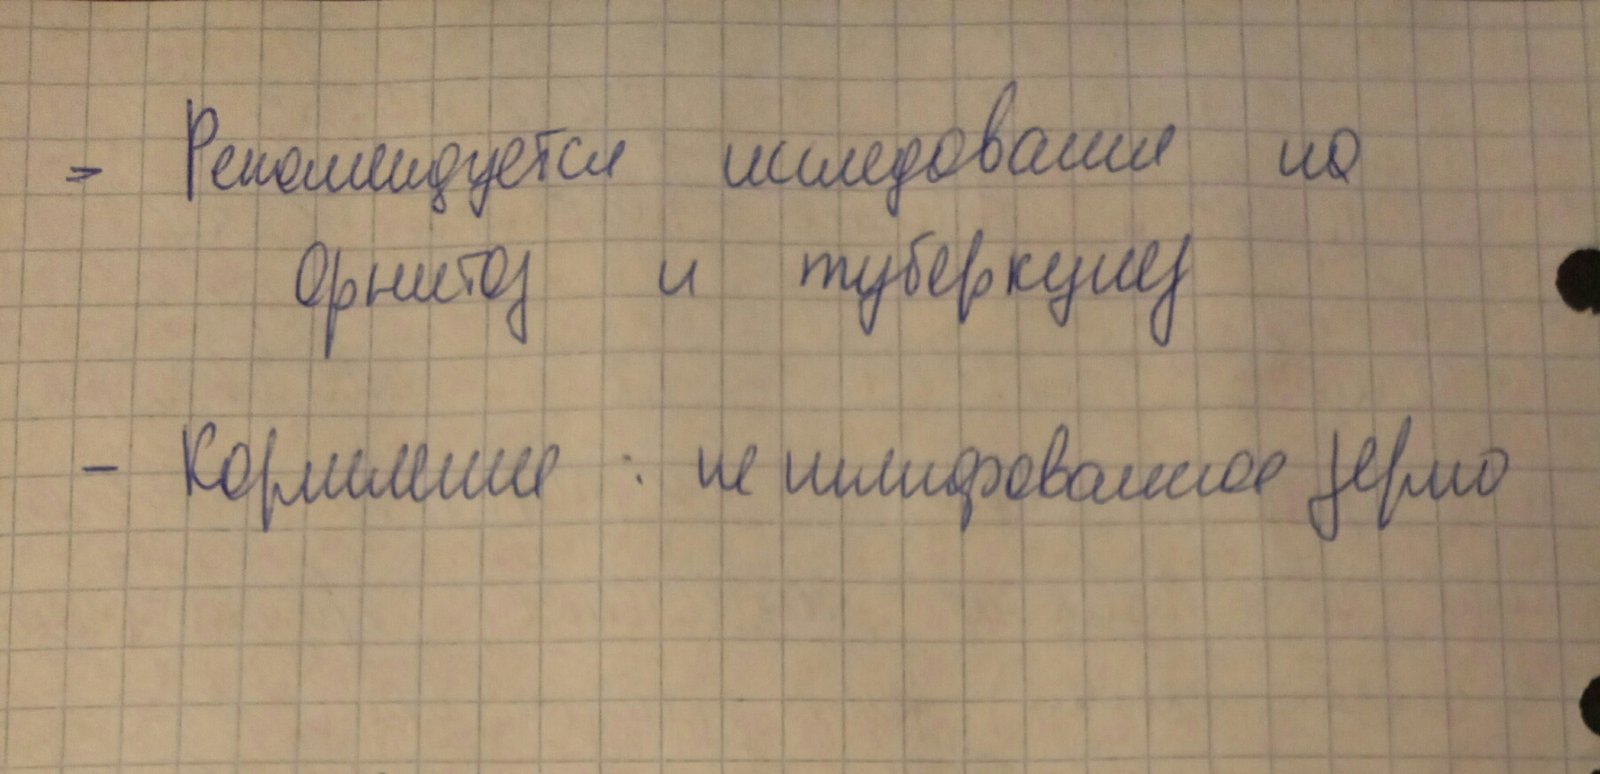 - Рекомендуется исследование на
орнитоз и туберкулез
- Кормление : не шлифованное зерно